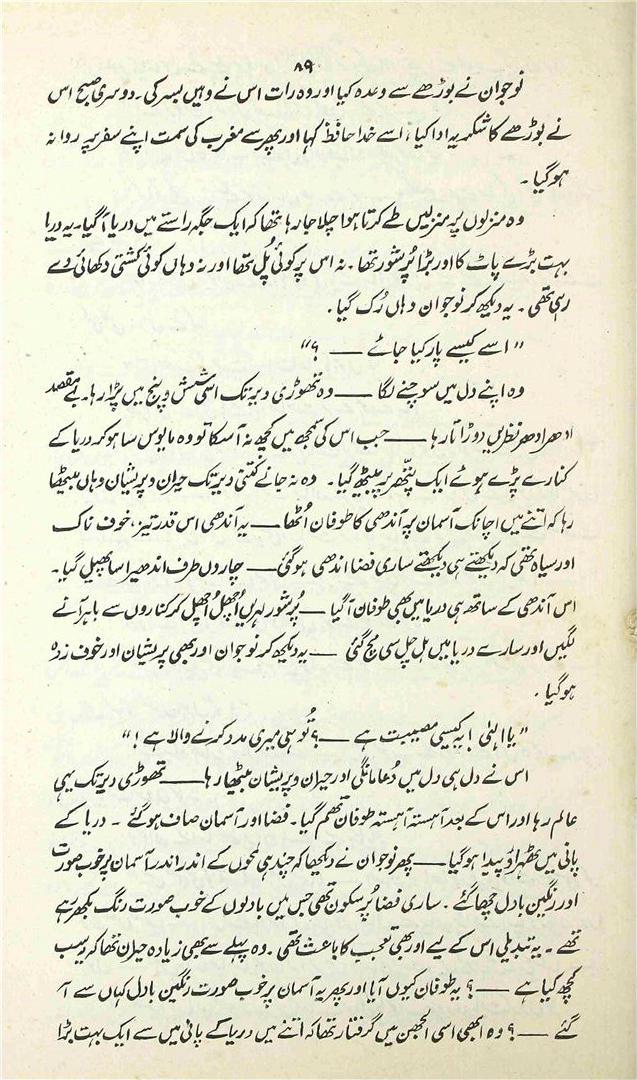 ۸۹
نوجوان نے بوڑھے سے وعدہ کیا اور وہ رات اس نے وہیں بسر کی۔ دوسری صبح اس
نے بوڑھے کا شکریہ ادا کیا، اسے خدا حافظ کہا اور پھر سے مغرب کی سمت اپنے سفر پر روانہ
ہو گیا۔
وہ منزلوں پہ منزلیں طے کرتا ہوا چلا جا رہا تھا کہ ایک جگہ راستے میں دریا آ گیا۔ یہ دریا
بہت بڑے پاٹ کا اور بڑا پُر شور تھا۔ نہ اس پر کوئی پُل تھا اور نہ وہاں کوئی کشتی دکھائی دے
رہی تھی۔ یہ دیکھ کر نوجوان وہاں رُک گیا۔
"اسے کیسے پار کیا جائے ——؟"
وہ اپنے دل میں سوچنے لگا —— وہ تھوڑی دیر تک اسی شش و پنج میں پڑا رہا۔ بے مقصد
ادھر ادھر نظریں دوڑاتا رہا —— جب اس کی سمجھ میں کچھ نہ آ سکا تو وہ مایوس سا ہو کر دریا کے
کنارے پڑے ہوئے ایک پتھر پر بیٹھ گیا۔ وہ نہ جانے کتنی دیر تک حیران و پریشان وہاں بیٹھا
رہا کہ اتنے میں اچانک آسمان پر آندھی کا طوفان اُٹھا —— یہ آندھی اس قدر تیز، خوف ناک
اور سیاہ تھی کہ دیکھتے ہی دیکھتے ساری فضا اندھی ہو گئی —— چاروں طرف اندھیرا سا پھیل گیا۔
اس آندھی کے ساتھ ہی دریا میں بھی طوفان آ گیا —— پُر شور لہریں اُچھل اُچھل کر کناروں سے باہر آنے
لگیں اور سارے دریا میں ہل چل سی مچ گئی —— یہ دیکھ کر نوجوان اور بھی پریشان اور خوف زدہ
ہو گیا۔
"یا الٰہی! یہ کیسی مصیبت ہے ——؟ تُو ہی میری مدد کرنے والا ہے!"
اس نے دل ہی دل میں دُعا مانگی اور حیران و پریشان بیٹھا رہا —— تھوڑی دیر تک یہی
عالم رہا اور اس کے بعد آہستہ آہستہ طوفان تھم گیا۔ فضا اور آسمان صاف ہو گئے۔ دریا کے
پانی میں ٹھہراؤ پیدا ہو گیا —— پھر نوجوان نے دیکھا کہ چند ہی لمحوں کے اندر اندر آسمان پر خوب صورت
اور رنگین بادل چھا گئے۔ ساری فضا پُر سکون تھی جس میں بادلوں کے خوب صورت رنگ بکھر رہے
تھے۔ یہ تبدیلی اس کے لیے اور بھی تعجب کا باعث تھی۔ وہ پہلے سے بھی زیادہ حیران تھا کہ یہ سب
کچھ کیا ہے ——؟ یہ طوفان کیوں آیا اور پھر یہ آسمان پر خوب صورت رنگین بادل کہاں سے آ
گئے ——؟ وہ ابھی اسی الجھن میں گرفتار تھا کہ اتنے میں دریا کے پانی میں سے ایک بہت بڑا